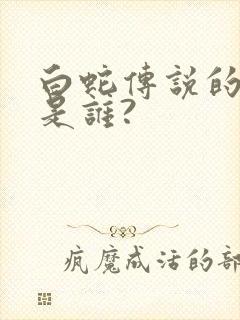 白蛇傳説的
是誰?
疯魔成活的部